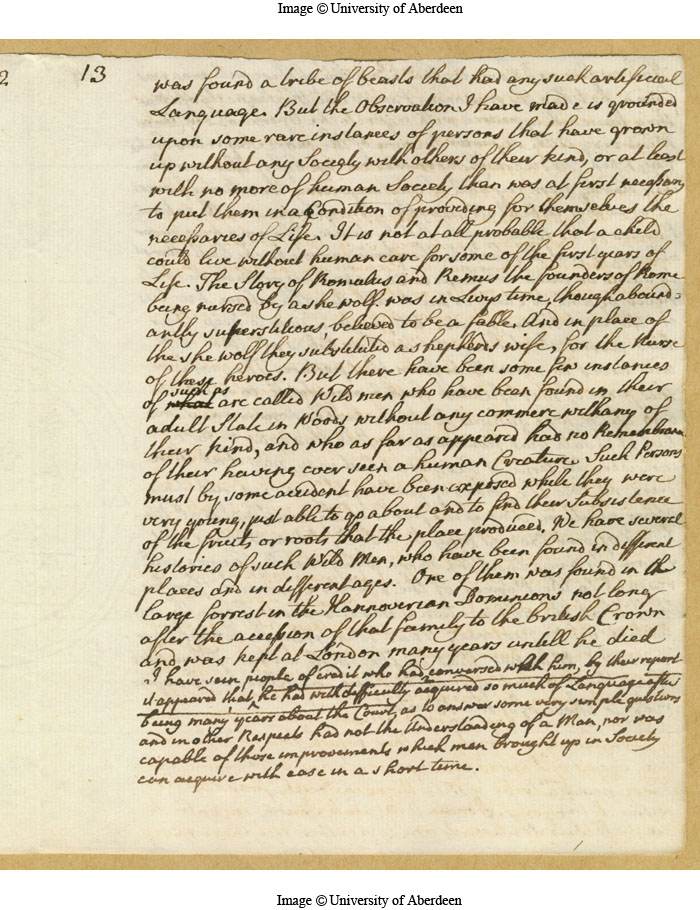 Image © University of Aberdeen
2
13
was found a tribe of beasts that had any such artificial
Language. But the Observation I have made is grounded
upon some rare instances of persons that have grown
up without any Society with others of their kind, or at least
with no more of human Society than was at first necessary
to put them in a Condition of providing for themselves the
necessaries of Life. It is not at all probable that a child
could live without human care for some of the first years of
Life. The Story of Romulus and Remus the founders of Rome
being nursed by a she wolf. was in Livys time, though abound=
antly superstitious, believed to be a fable. And in place of
the she wolf they substituted a shepherds wife, for the Nurse
of these heroes. But there have been some few instances
such as
of what are called Wild men who have been found in their
adult State in Woods without any commerc with any of
their kind, and who as far as appeared had no Remembrance
of their having ever seen a human Creature. Such Persons
must by some accident have been exposed while they were
very young, just able to go about and to find their Subsistence
of the fruits or roots that the place produced. We have several
histories of such Wild Men, who have been found in different
places and in different ages. One of them was found in the
large forrest in the Hannoverian Dominions not long
after the accession of that family to the british Crown
and was kept at London many years untill he died
I have seen people of credit who had conversed with him, by their report
it appeared that he had with difficulty acquired so much of Language after
being many years about the Court, as to answer some very simple questions
and in other Respects had not the Understanding of a Man, nor was
capable of those improvements which men brought up in Society
can acquire with ease in a short time.
Image © University of Aberdeen